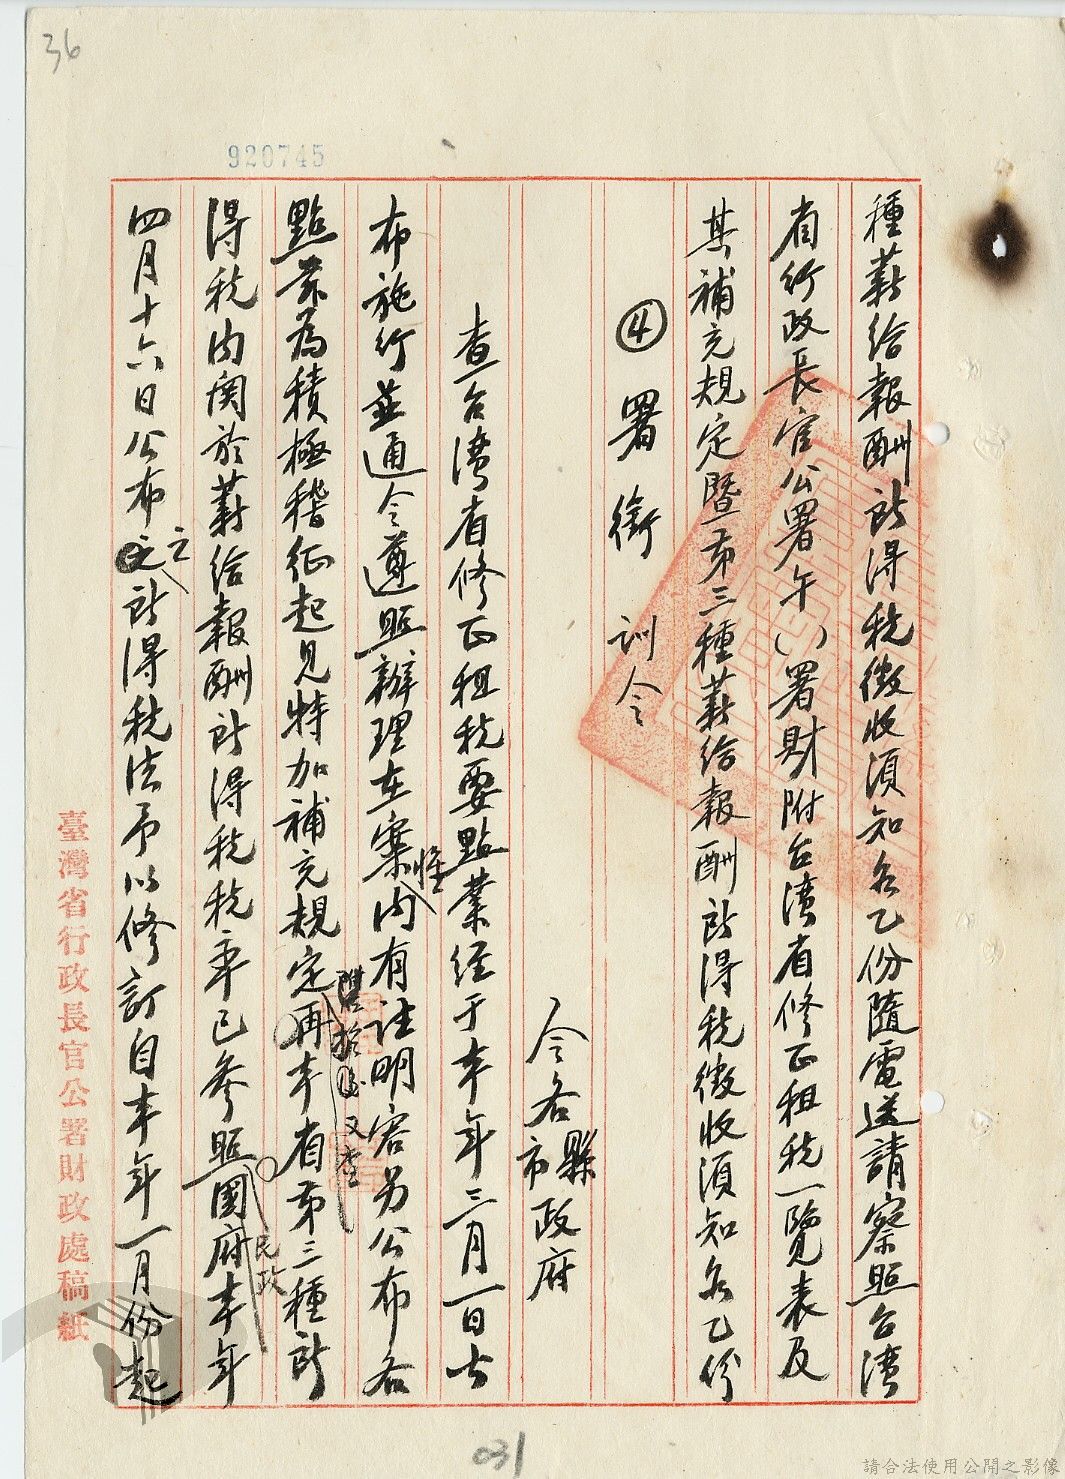 36
920745
種薪給報酬所得稅徵收須知各乙份隨電送請察照台灣
省行政長官公署午( )署財附台灣省修正租稅一覽表及
其補充規定暨第三種薪給報酬所得稅徵收須知各乙份
④署銜 訓令
令各縣市政府
查台灣省修正租稅要點業經于本年三月一日公
布施行並通令遵照辦理在案惟內有註明容另公布各
點茲為積極稽征起見特加補充規定再本省第三種所
得稅內關於薪給報酬所得稅稅率已參照國府本年
民政
四月十六日公布之所得稅法予以修訂自本年一月份起
臺灣省行政長官公署財政處稿紙
031
請合法使用公開之影像